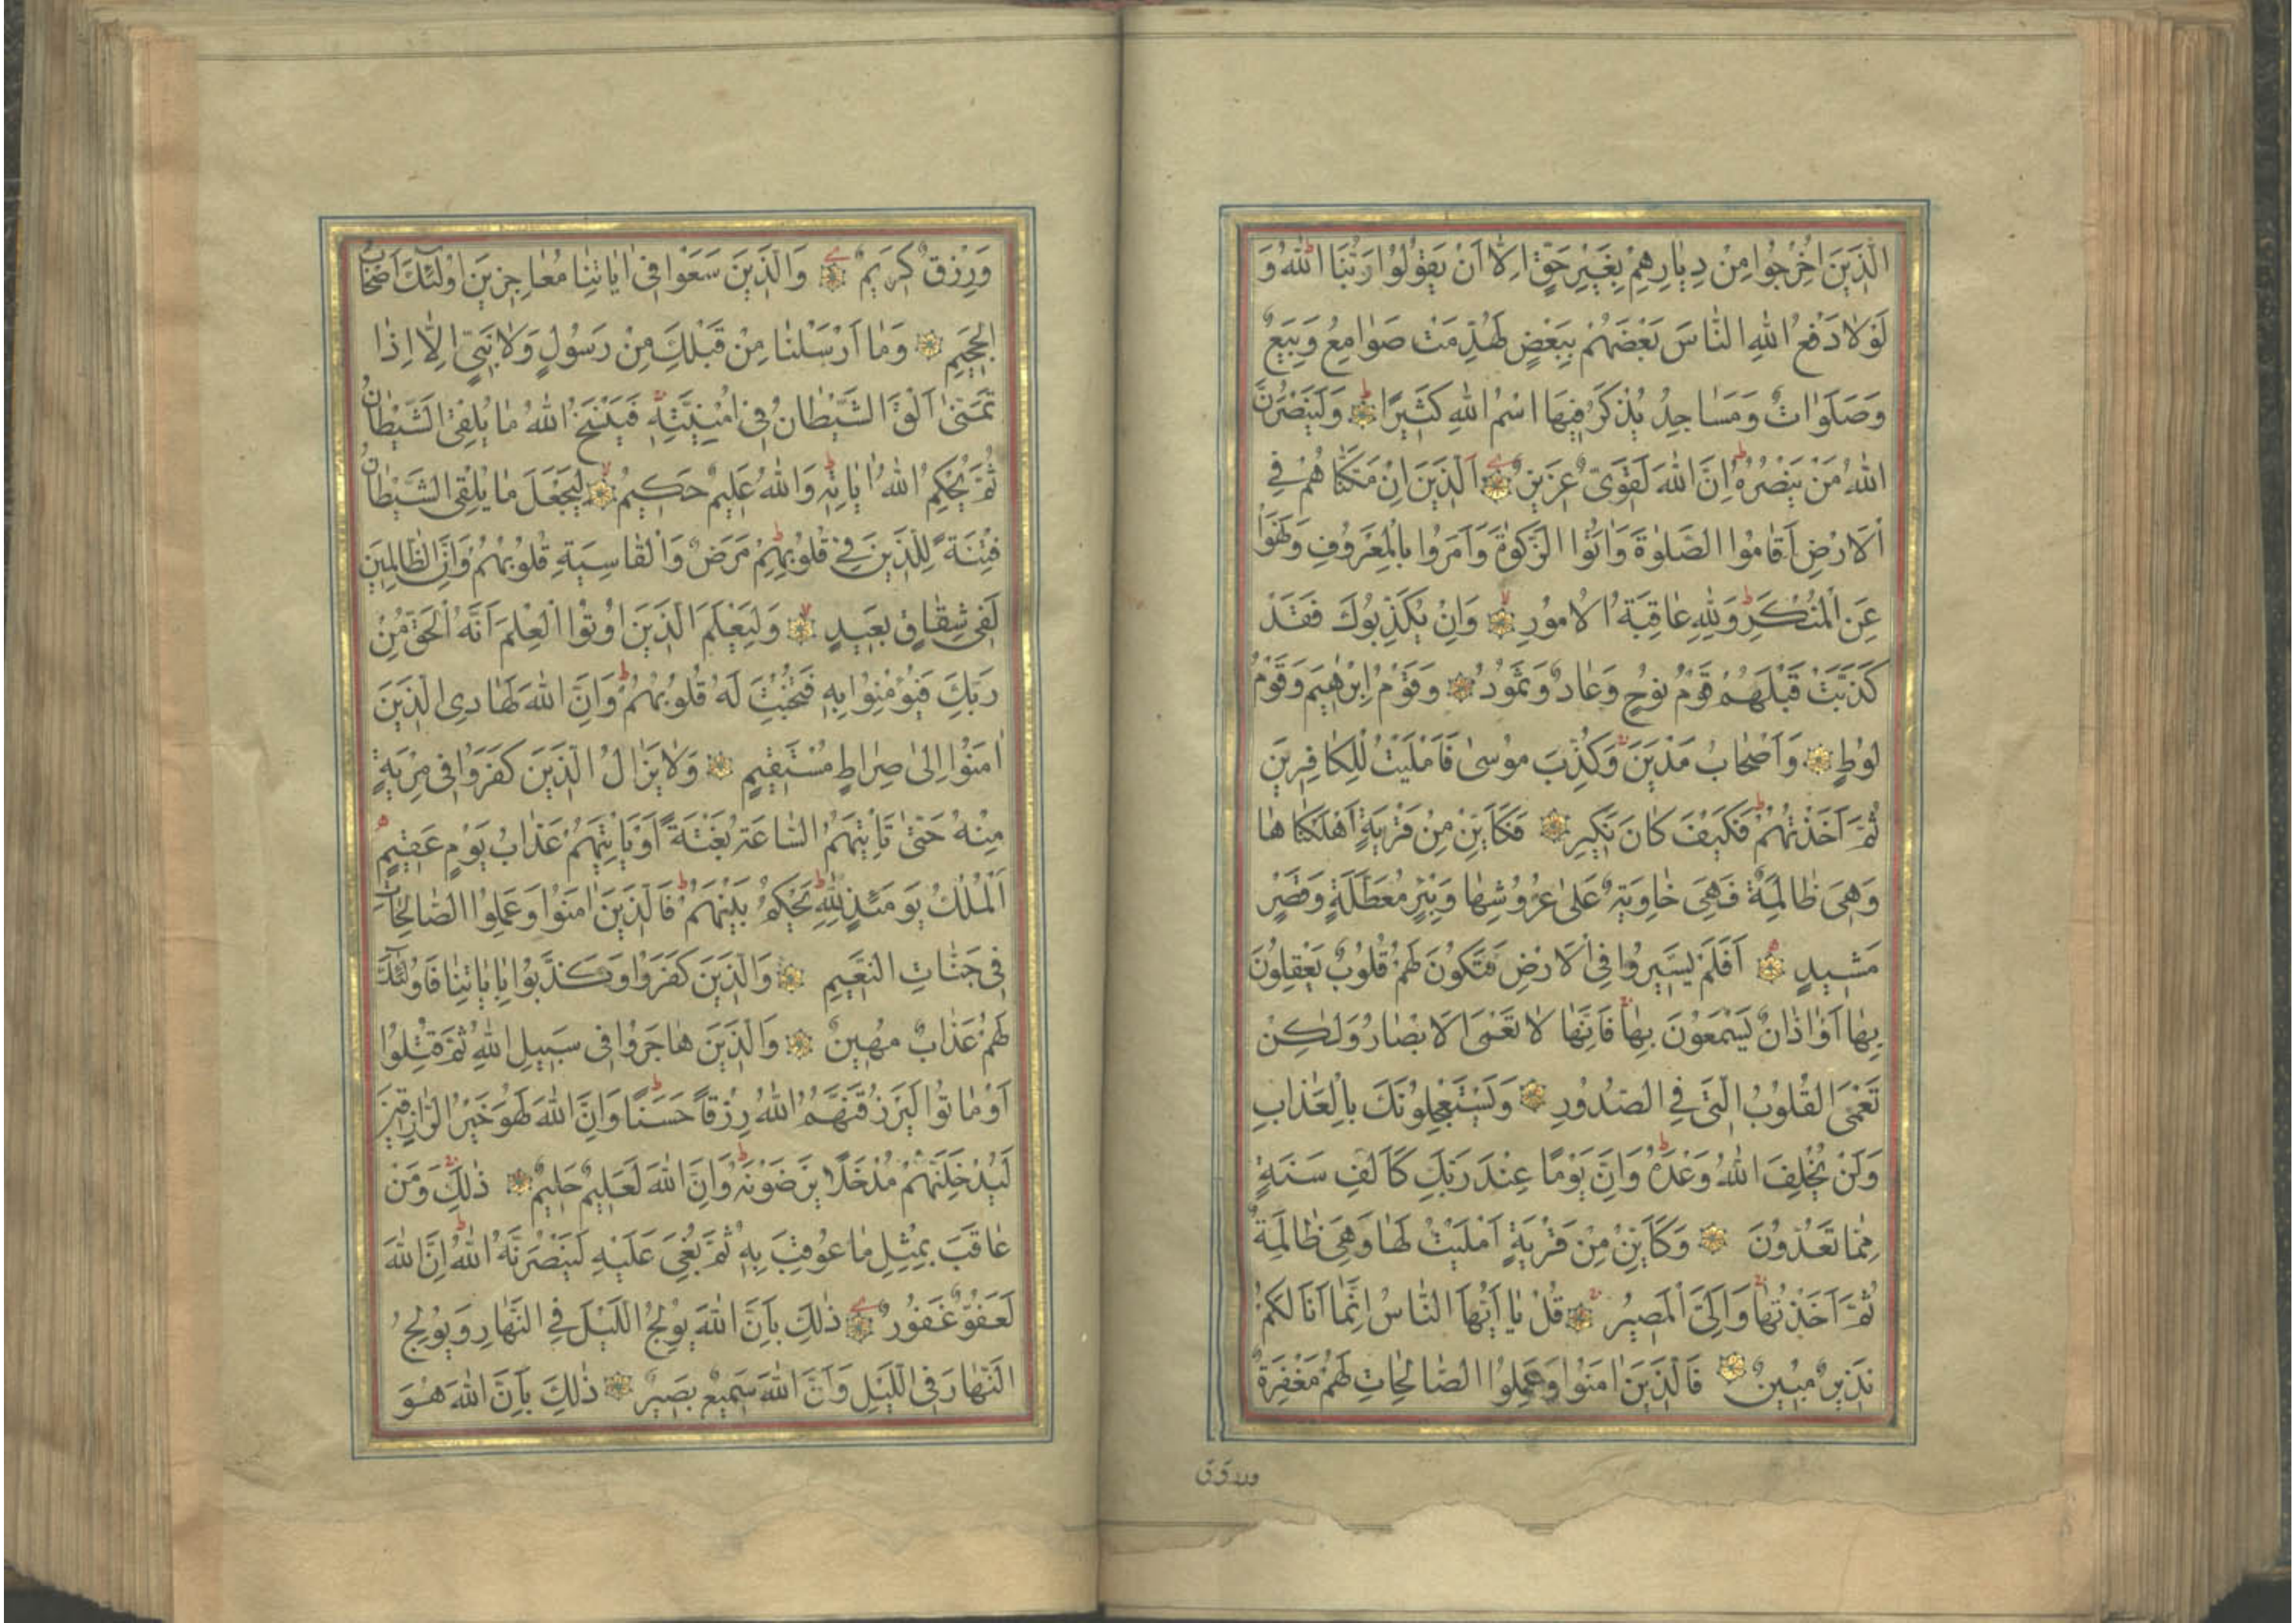 الَّذِينَ اُخْرِجُوا مِنْ دِيَارِهِمْ بِغَيْرِ حَقٍّ اِلَّا اَنْ يَقُولُوا رَبُّنَا اللهُ وَ
لَوْلَا دَفْعُ اللهِ النَّاسَ بَعْضَهُمْ بِبَعْضٍ لَهُدِّمَتْ صَوَامِعُ وَبِيَعٌ
وَصَلَوَاتٌ وَمَسَاجِدُ يُذْكَرُ فِيهَا اسْمُ اللهِ كَثِيرًا ط وَلَيَنْصُرَنَّ
اللهُ مَنْ يَنْصُرُهُ ط اِنَّ اللهَ لَقَوِىٌّ عَزِيزٌ اَلَّذِينَ اِنْ مَكَّنَّاهُمْ فِي
الْاَرْضِ اَقَامُوا الصَّلٰوةَ وَاٰتَوُا الزَّكٰوةَ وَاَمَرُوا بِالْمَعْرُوفِ وَنَهَوْا
عَنِ الْمُنْكَرِ ط وَلِلّٰهِ عَاقِبَةُ الْاُمُورِ لا وَاِنْ يُكَذِّبُوكَ فَقَدْ
كَذَّبَتْ قَبْلَهُمْ قَوْمُ نُوحٍ وَعَادٌ وَثَمُودُ وَقَوْمُ اِبْرٰهِيمَ وَقَوْمُ
لُوطٍ وَاَصْحَابُ مَدْيَنَ وَكُذِّبَ مُوسٰى فَاَمْلَيْتُ لِلْكَافِرِينَ
ثُمَّ اَخَذْتُهُمْ ط فَكَيْفَ كَانَ نَكِيرِ فَكَاَيِّنْ مِنْ قَرْيَةٍ اَهْلَكْنَاهَا
وَهِيَ ظَالِمَةٌ فَهِيَ خَاوِيَةٌ عَلٰى عُرُوشِهَا وَبِئْرٍ مُعَطَّلَةٍ وَقَصْرٍ
مَشِيدٍ اَفَلَمْ يَسِيرُوا فِي الْاَرْضِ فَتَكُونَ لَهُمْ قُلُوبٌ يَعْقِلُونَ
بِهَا اَوْ اٰذَانٌ يَسْمَعُونَ بِهَا فَاِنَّهَا لَا تَعْمَى الْاَبْصَارُ وَلٰكِنْ
تَعْمَى الْقُلُوبُ الَّتِي فِي الصُّدُورِ وَيَسْتَعْجِلُونَكَ بِالْعَذَابِ
وَلَنْ يُخْلِفَ اللهُ وَعْدَهُ ط وَاِنَّ يَوْمًا عِنْدَ رَبِّكَ كَاَلْفِ سَنَةٍ
مِمَّا تَعُدُّونَ وَكَاَيِّنْ مِنْ قَرْيَةٍ اَمْلَيْتُ لَهَا وَهِيَ ظَالِمَةٌ
ثُمَّ اَخَذْتُهَا وَاِلَيَّ الْمَصِيرُ قُلْ يَا اَيُّهَا النَّاسُ اِنَّمَا اَنَا لَكُمْ
نَذِيرٌ مُبِينٌ فَالَّذِينَ اٰمَنُوا وَعَمِلُوا الصَّالِحَاتِ لَهُمْ مَغْفِرَةٌ
ورزق
وَرِزْقٌ كَرِيمٌ وَالَّذِينَ سَعَوْا فِي اٰيَاتِنَا مُعَاجِزِينَ اُولٰئِكَ اَصْحَابُ
الْجَحِيمِ وَمَا اَرْسَلْنَا مِنْ قَبْلِكَ مِنْ رَسُولٍ وَلَا نَبِيٍّ اِلَّا اِذَا
تَمَنّٰى اَلْقَى الشَّيْطَانُ فِي اُمْنِيَّتِهِ فَيَنْسَخُ اللهُ مَا يُلْقِي الشَّيْطَانُ
ثُمَّ يُحْكِمُ اللهُ اٰيَاتِهِ ط وَاللهُ عَلِيمٌ حَكِيمٌ لا لِيَجْعَلَ مَا يُلْقِي الشَّيْطَانُ
فِتْنَةً لِلَّذِينَ فِي قُلُوبِهِمْ مَرَضٌ وَالْقَاسِيَةِ قُلُوبُهُمْ ط وَاِنَّ الظَّالِمِينَ
لَفِي شِقَاقٍ بَعِيدٍ لا وَلِيَعْلَمَ الَّذِينَ اُوتُوا الْعِلْمَ اَنَّهُ الْحَقُّ مِنْ
رَبِّكَ فَيُؤْمِنُوا بِهِ فَتُخْبِتَ لَهُ قُلُوبُهُمْ ط وَاِنَّ اللهَ لَهَادِي الَّذِينَ
اٰمَنُوا اِلٰى صِرَاطٍ مُسْتَقِيمٍ وَلَا يَزَالُ الَّذِينَ كَفَرُوا فِي مِرْيَةٍ
مِنْهُ حَتّٰى تَاْتِيَهُمُ السَّاعَةُ بَغْتَةً اَوْ يَاْتِيَهُمْ عَذَابُ يَوْمٍ عَقِيمٍ
اَلْمُلْكُ يَوْمَئِذٍ لِلّٰهِ ط يَحْكُمُ بَيْنَهُمْ ط فَالَّذِينَ اٰمَنُوا وَعَمِلُوا الصَّالِحَاتِ
فِي جَنَّاتِ النَّعِيمِ وَالَّذِينَ كَفَرُوا وَكَذَّبُوا بِاٰيَاتِنَا فَاُولٰئِكَ
لَهُمْ عَذَابٌ مُهِينٌ وَالَّذِينَ هَاجَرُوا فِي سَبِيلِ اللهِ ثُمَّ قُتِلُوا
اَوْ مَاتُوا لَيَرْزُقَنَّهُمُ اللهُ رِزْقًا حَسَنًا ط وَاِنَّ اللهَ لَهُوَ خَيْرُ الرَّازِقِينَ
لَيُدْخِلَنَّهُمْ مُدْخَلًا يَرْضَوْنَهُ ط وَاِنَّ اللهَ لَعَلِيمٌ حَلِيمٌ ذٰلِكَ وَمَنْ
عَاقَبَ بِمِثْلِ مَا عُوقِبَ بِهِ ثُمَّ بُغِيَ عَلَيْهِ لَيَنْصُرَنَّهُ اللهُ ط اِنَّ اللهَ
لَعَفُوٌّ غَفُورٌ ذٰلِكَ بِاَنَّ اللهَ يُولِجُ اللَّيْلَ فِي النَّهَارِ وَيُولِجُ
النَّهَارَ فِي اللَّيْلِ وَاَنَّ اللهَ سَمِيعٌ بَصِيرٌ ذٰلِكَ بِاَنَّ اللهَ هُوَ